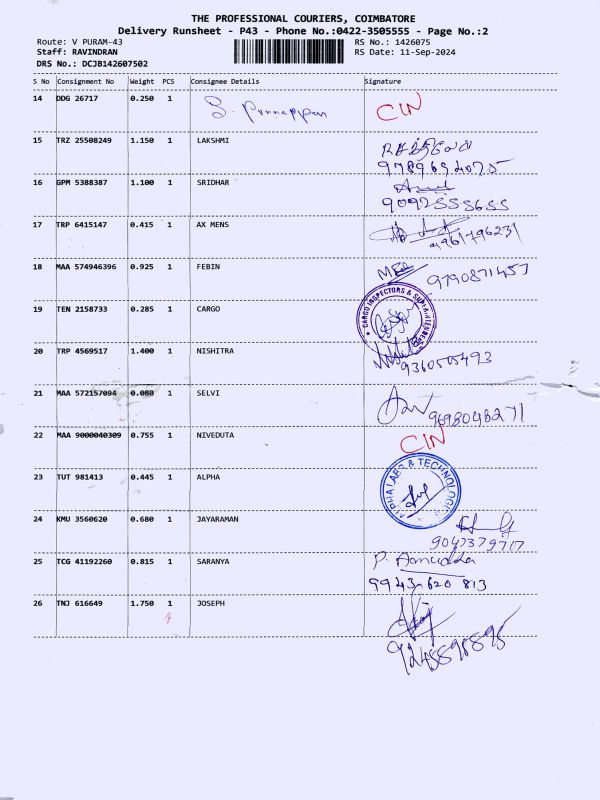 THE PROFESSIONAL COURIERS, COIMBATORE
Delivery Runsheet - P43 - Phone No.:0422-3505555 - Page No.:2
Route: V PURAM-43 RS No.: 1426075
Staff: RAVINDRAN RS Date: 11-Sep-2024
DRS No.: DCJB142607502
S No Consignment No Weight PCS Consignee Details Signature
14 DDG 26717 0.250 1 S. Ponnappan CIN
15 TRZ 25508249 1.150 1 LAKSHMI
16 GPM 5388387 1.100 1 SRIDHAR
9092555655
17 TRP 6415147 0.415 1 AX MENS
9961796231
18 MAA 574946396 0.925 1 FEBIN
9790871457
19 TEN 2158733 0.285 1 CARGO
CARGO INSPECTORS &
20 TRP 4569517 1.400 1 NISHITRA
9360505493
21 MAA 572157094 0.080 1 SELVI
9698048271
22 MAA 9000040309 0.755 1 NIVEDUTA CIN
23 TUT 981413 0.445 1 ALPHA
ALPHA LABS & TECHNOLOGIES
24 KMU 3560620 0.680 1 JAYARAMAN
9047379717
25 TCG 41192260 0.815 1 SARANYA P. Amudha
99439620 813
26 TNJ 616649 1.750 1 JOSEPH